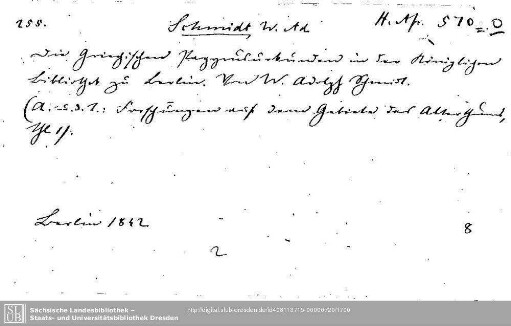 255. Schmidt W. Ad H. Af. 510 = 0
Die Griechischen Papyrusurkunden in der Königlichen
Bibliothek zu Berlin. Von W. Adolph Schmidt.
(A. u. d. T.: Forschungen auf dem Gebiete des Alterthums,
Thl 1).
Berlin 1842 8
2
Sächsische Landesbibliothek –
Staats- und Universitätsbibliothek Dresden